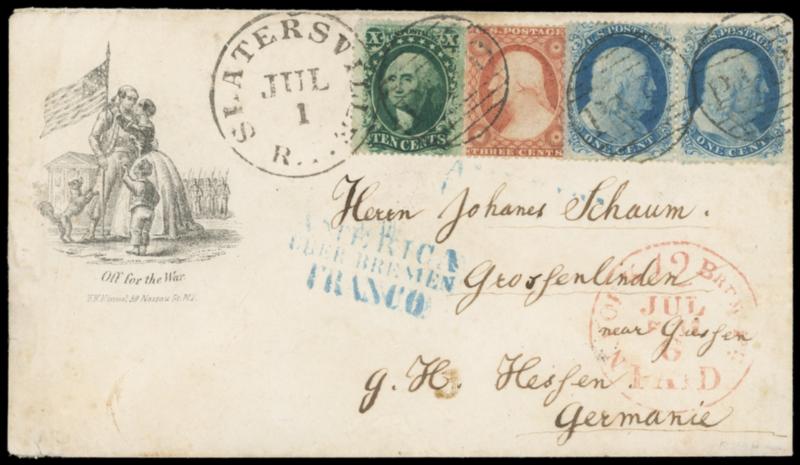 SLATERSVILLE
JUL
1
R. I.
U.S. POSTAGE
X X
TEN CENTS
U.S. POSTAGE
THREE CENTS
U.S. POSTAGE
ONE CENT
U.S. POSTAGE
ONE CENT
PAID
Off for the War.
Herrn Johanes Schaum.
AMERICA
UEBER BREMEN
FRANCO
Grossenlinden
near Giessen
g. H. Hessen
Germanie
12
JUL
6
PAID